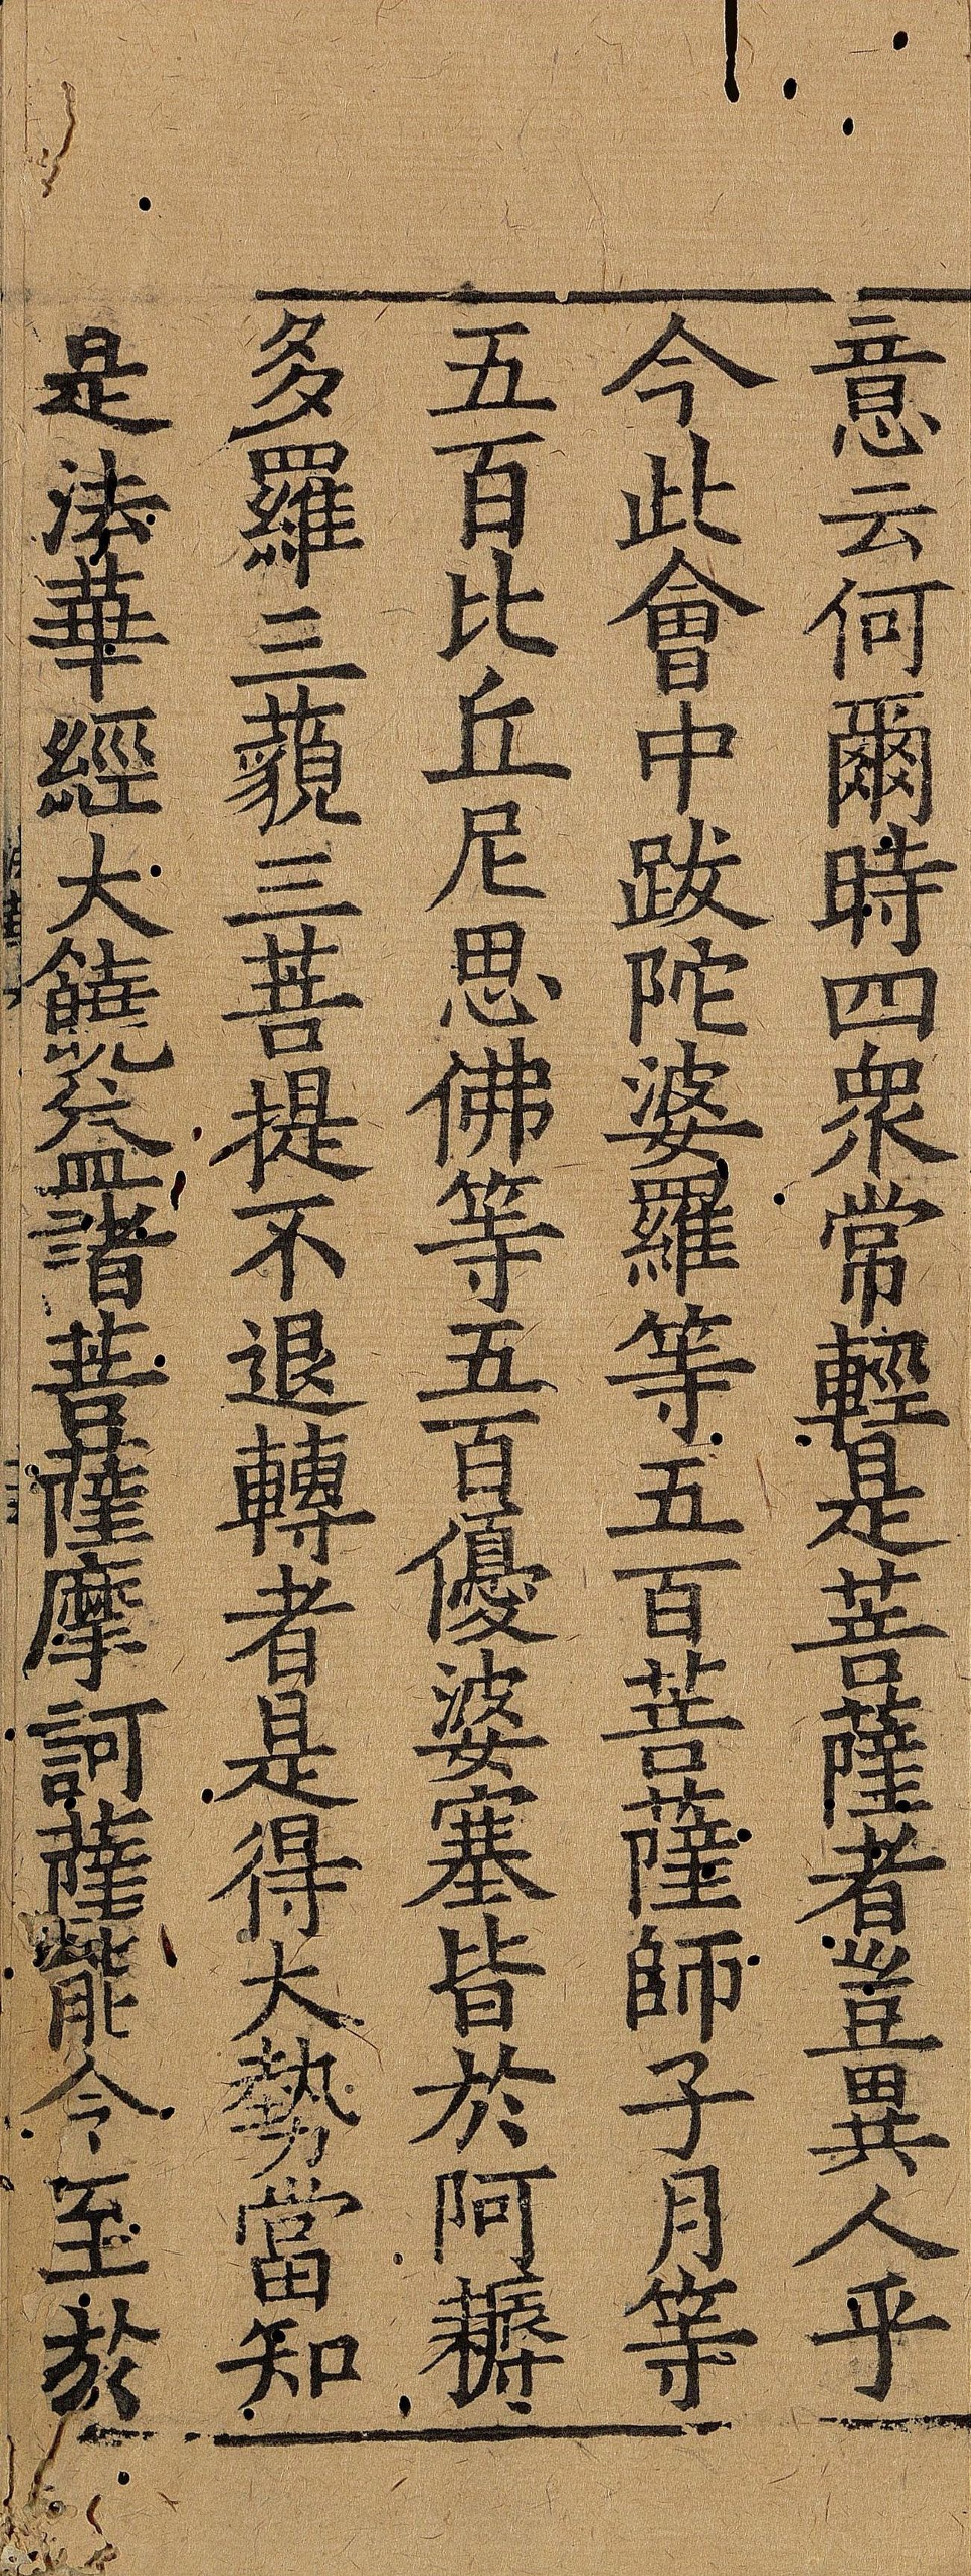 意云何爾時四衆常輕是菩薩者豈異人乎
今此會中跋陀婆羅等五百菩薩師子月等
五百比丘尼思佛等五百優婆塞皆於阿耨
多羅三藐三菩提不退轉者是得大勢當知
是法華經大饒益諸菩薩摩訶薩能令至於